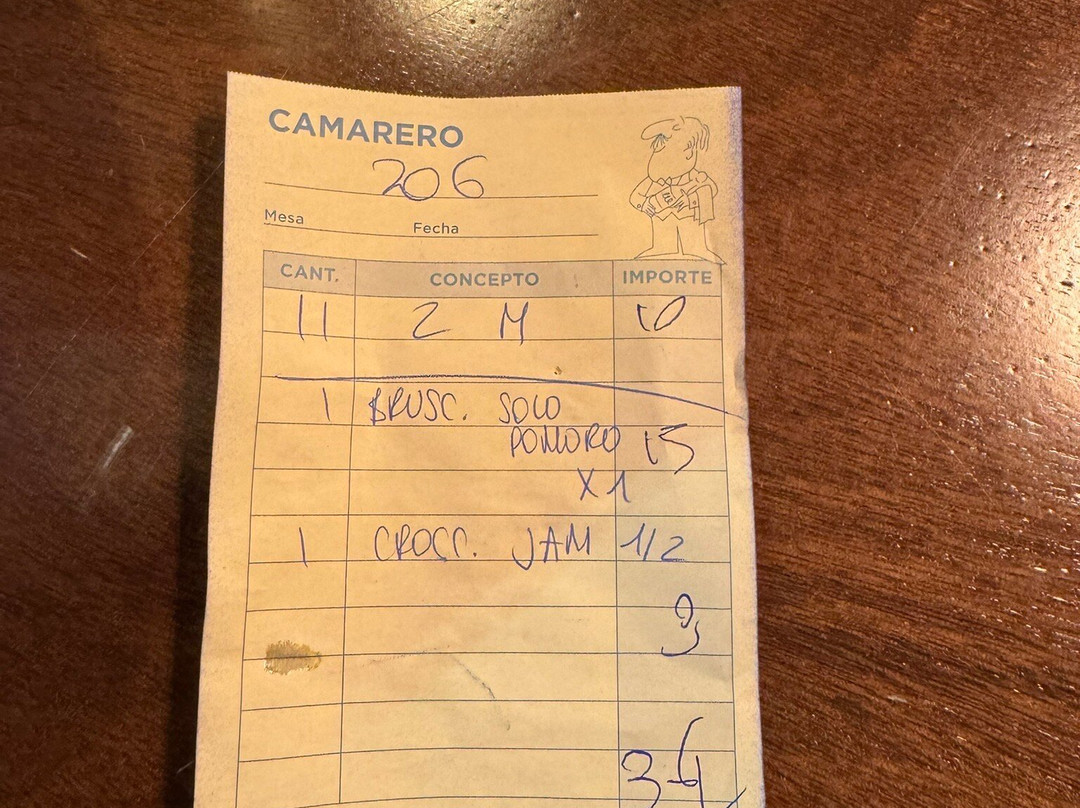 CAMARERO
206
Mesa Fecha
CANT. CONCEPTO IMPORTE
11 2 M 10
1 BRUSC. SOLO
POMORO 15
X 1
1 CROCC. JAM 1/2
9
34